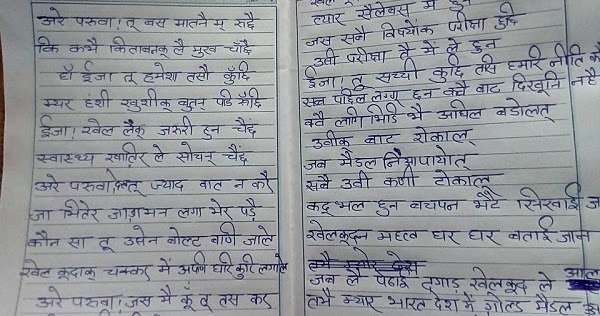 अरे परुवा! तु बस मातनै म् रुंछै
कि कभै किताबनक् लै मुख चाँछै
हाँ ईजा तु हमेशा तसौ कुँछि
म्यर हंशी खुशीक् वुतन् पडि रुँछि
ईजा! खेल लैक् जरुरी हुन चैंछ
स्वास्थ्य खातिर ले सोचन् चैंछ
अरे परुवा ज्याद बात न कौ
जा भितेर जा मन लगा भेर पड़ै
कौन सा तू उसेन बोल्ट बणि जाले
खेल कूदाक् चक्कर में अपणि घरि कुटि लगाले
अरे परुवा! जस मैं कूँ तू तस कर
त्यार सैलेबस् में हुन
जस सबै विषयोंक परीक्षा हुँछि
उसी परीक्षा तै में ले हुन
ईजा! तु सच्ची कुँछि तसि हमरि नीति
सब पछिल लागण् हुन क्वै बाट दिखूनि न्है
क्वै लागि भिडि भै अघिल बडोलत्
उवीक् बाट रोकाल्
जब मैडल नि आपायोत्
सबै उवी कणी टोकाल्
कदु भल हुन बचपन भटै सिखाई
खेलकूदन महत्व घर घर बताई जान
जब लै पढाई दगाड़ खेलकूद ले आल
तभै म्यार भारत देश में गोल्ड मैडल